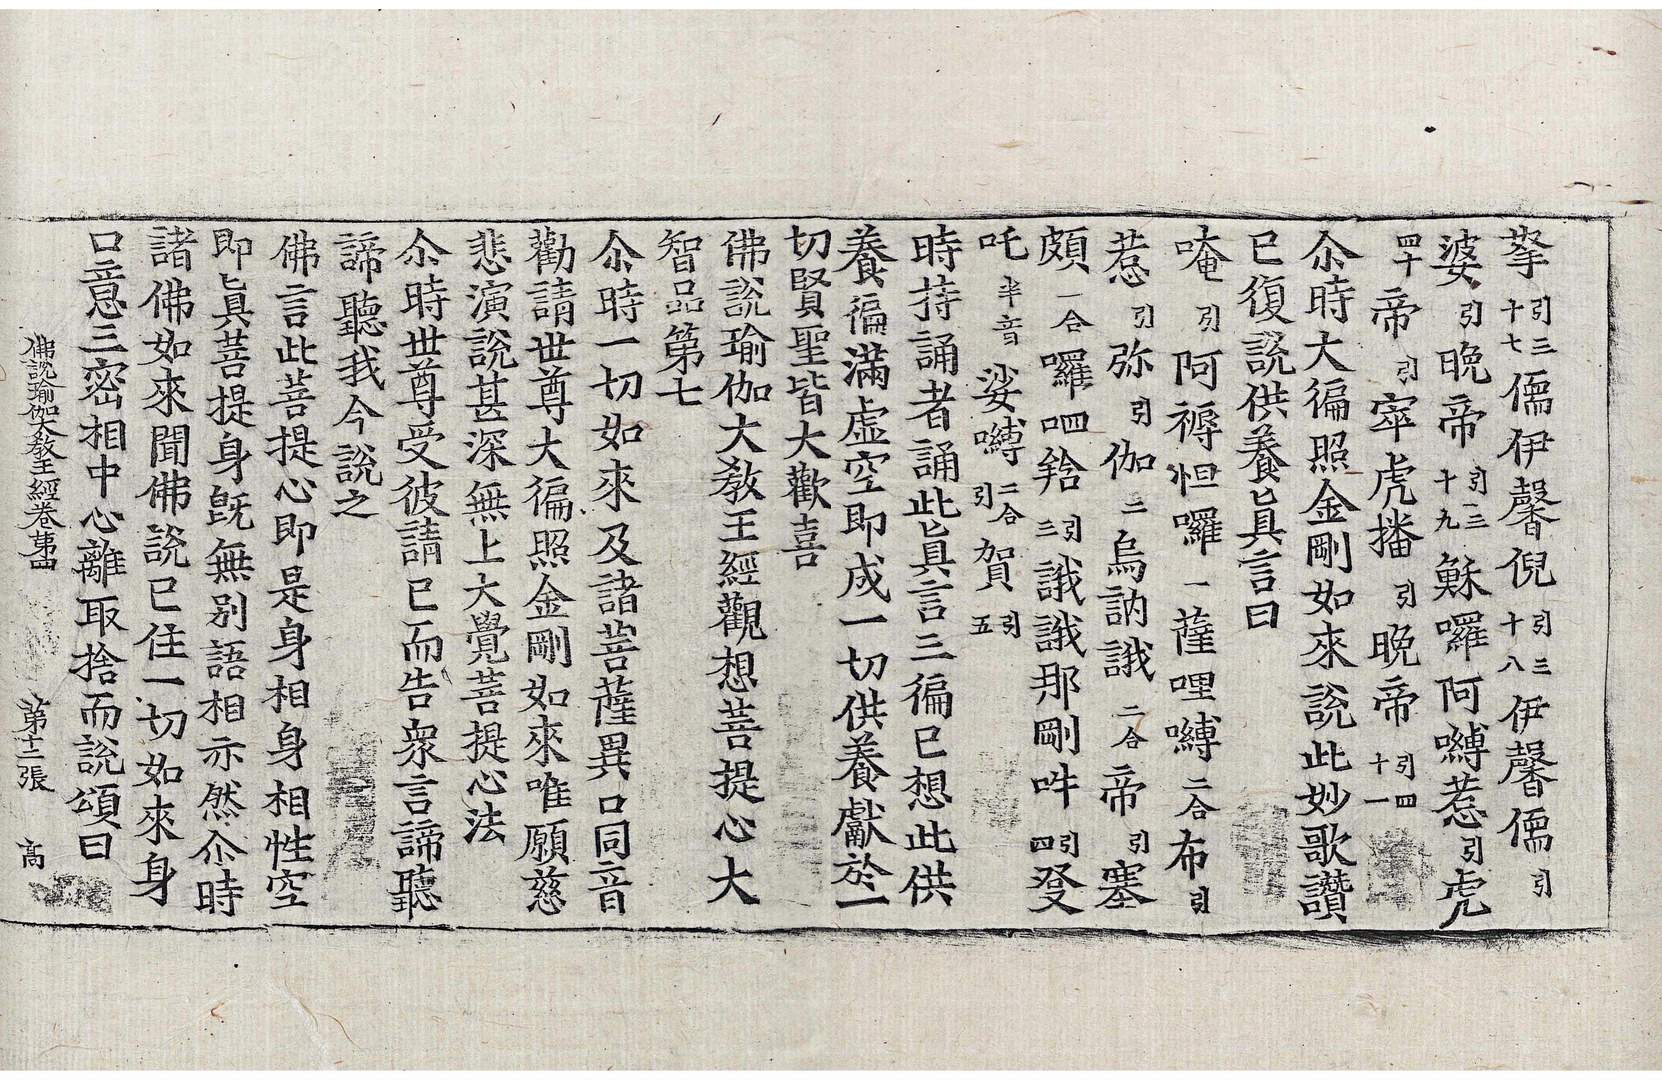 拏引三十七儒伊馨倪引三十八伊馨儒引
婆引晚帝引三十九穌囉阿嚩惹引虎
四十帝引寧虎播引晚帝引四十一
尒時大徧照金剛如來說此妙歌讚
已復說供養眞言曰
唵引阿褥怛囉一薩哩嚩二合布引
惹引弥引伽二烏訥誐二合帝引塞
頗二合囉呬䤈引三誐誐那剛吽引四癹
吒半音娑嚩二合引賀引五
時持誦者誦此眞言三徧已想此供
養徧滿虛空即成一切供養獻於一
切賢聖皆大歡喜
佛說瑜伽大教王經觀想菩提心大
智品第七
尒時一切如來及諸菩薩異口同音
勸請世尊大徧照金剛如來唯願慈
悲演說甚深無上大覺菩提心法
尒時世尊受彼請已而告衆言諦聽
諦聽我今說之
佛言此菩提心即是身相身相性空
即眞菩提身既無別語相亦然尒時
諸佛如來聞佛說已住一切如來身
口意三密相中心離取捨而說頌曰
佛說瑜伽大教王經卷第四 第十二張 高